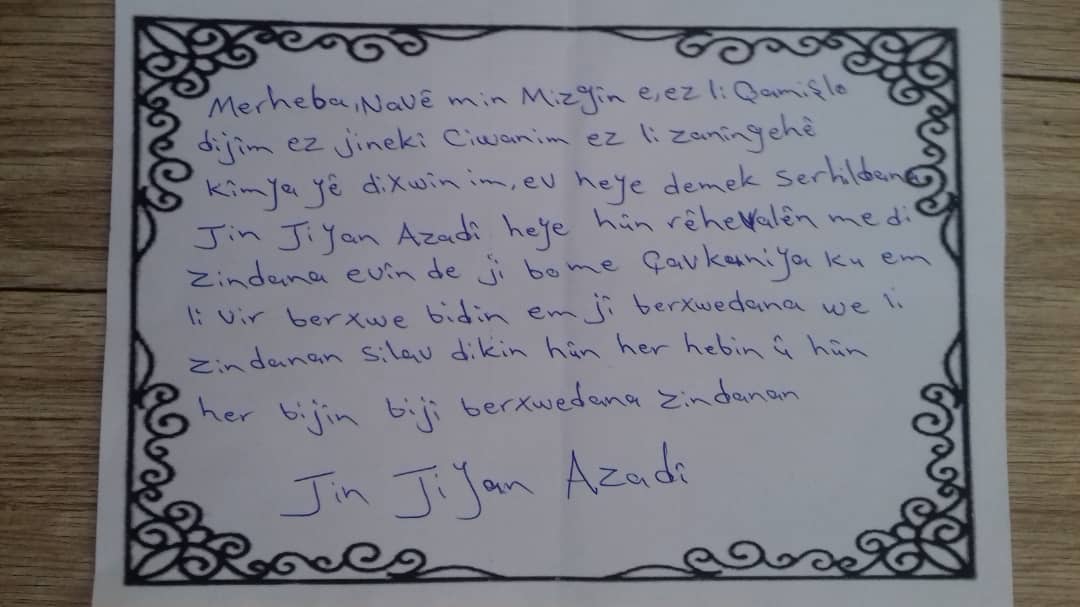 Merheba, Navê min Mizgîn e, ez li Qamişlo
dijîm ez jinekî Ciwanim ez li zanîngehê
kîmya yê dixwinim, ev heye demek serhildana
Jin Jiyan Azadî heye hûn rêhevalên me di
zindana evîn de ji bo me çavkaniya ku em
li vir berxwe bidin em jî berxwedana we li
zindanan silav dikin hûn her hebin û hûn
her bijîn bijî berxwedana zindanan
Jin Jiyan Azadî